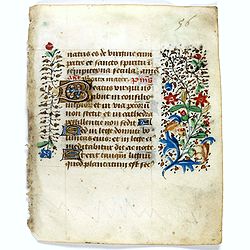 natus es de virgine cum
patre et sancto spiritu i
sempiterna secula. am
Beatus vir qui no
abiit in consilio
impiorum et in via peccato
non stetit et in cathedra
pestilentie non sedit
Sed in lege domini
voluntas eius et in lege e
meditabitur die ac nocte
Et erit tanquam lignum
quod plantatum est sec